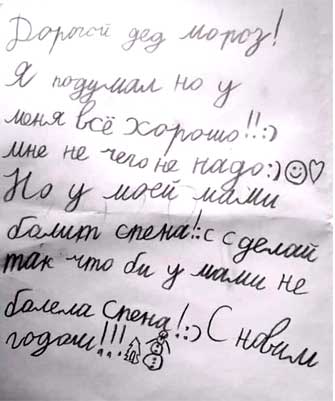 Дорогой дед мороз!
Я подумал но у
меня всё хорошо!!:)
мне не чего не надо:)☺♡
Но у моей мами
балит спена!:с сделай
так что би у мами не
балела спена!:) С новим
годом!!!